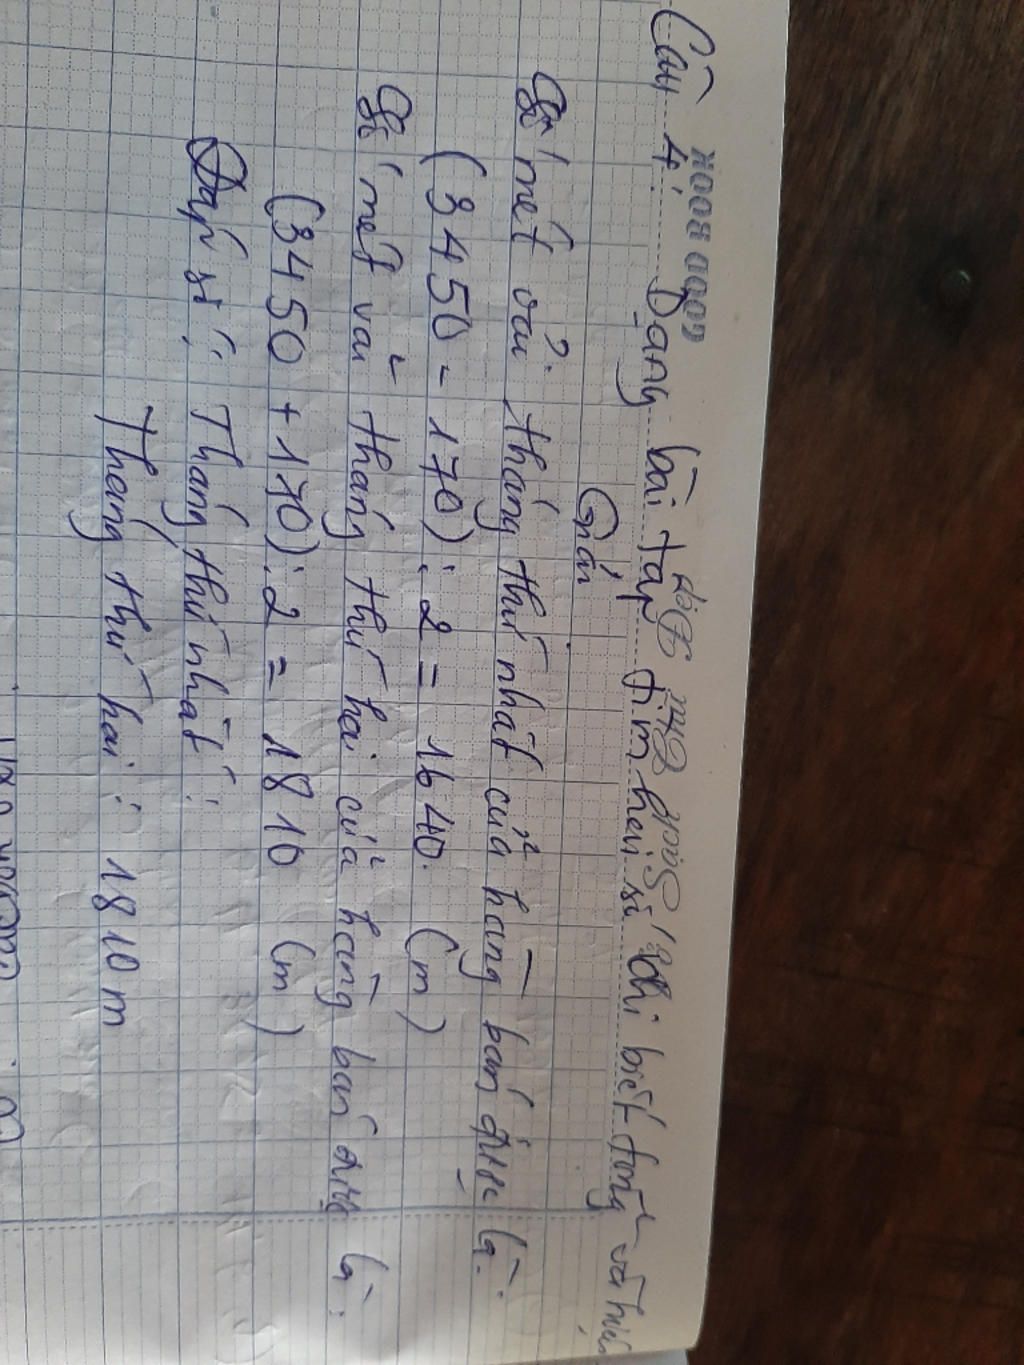 GOOD BOOK
Sách Thu Điệp
Câu 4: Dạng bài tập tìm hai số khi biết tổng và hiệu
Giải
Số mét vải tháng thứ nhất cửa hàng bán được là:
(3450 - 170) : 2 = 1640 (m)
Số mét vải tháng thứ hai của hàng bán được là:
(3450 + 170) : 2 = 1810 (m)
Đáp số: Tháng thứ nhất:
Tháng thứ hai: 1810 m